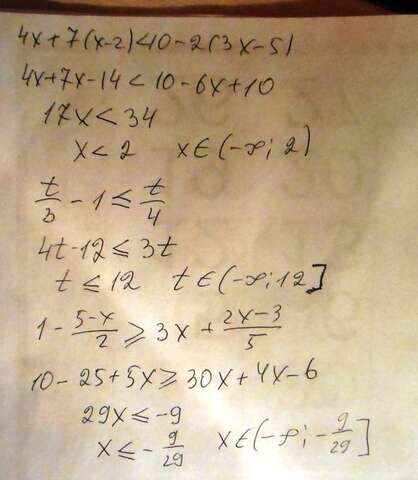 4x+7(x-2)<10-2(3x-5)
4x+7x-14<10-6x+10
17x<34
x<2 x∈(-∞; 2)
t/3 - 1 ≤ t/4
4t-12 ≤ 3t
t ≤ 12 t∈(-∞; 12]
1 - (5-x)/2 ≥ 3x + (2x-3)/5
10-25+5x ≥ 30x+4x-6
29x ≤ -9
x ≤ -9/29 x∈(-∞; -9/29]